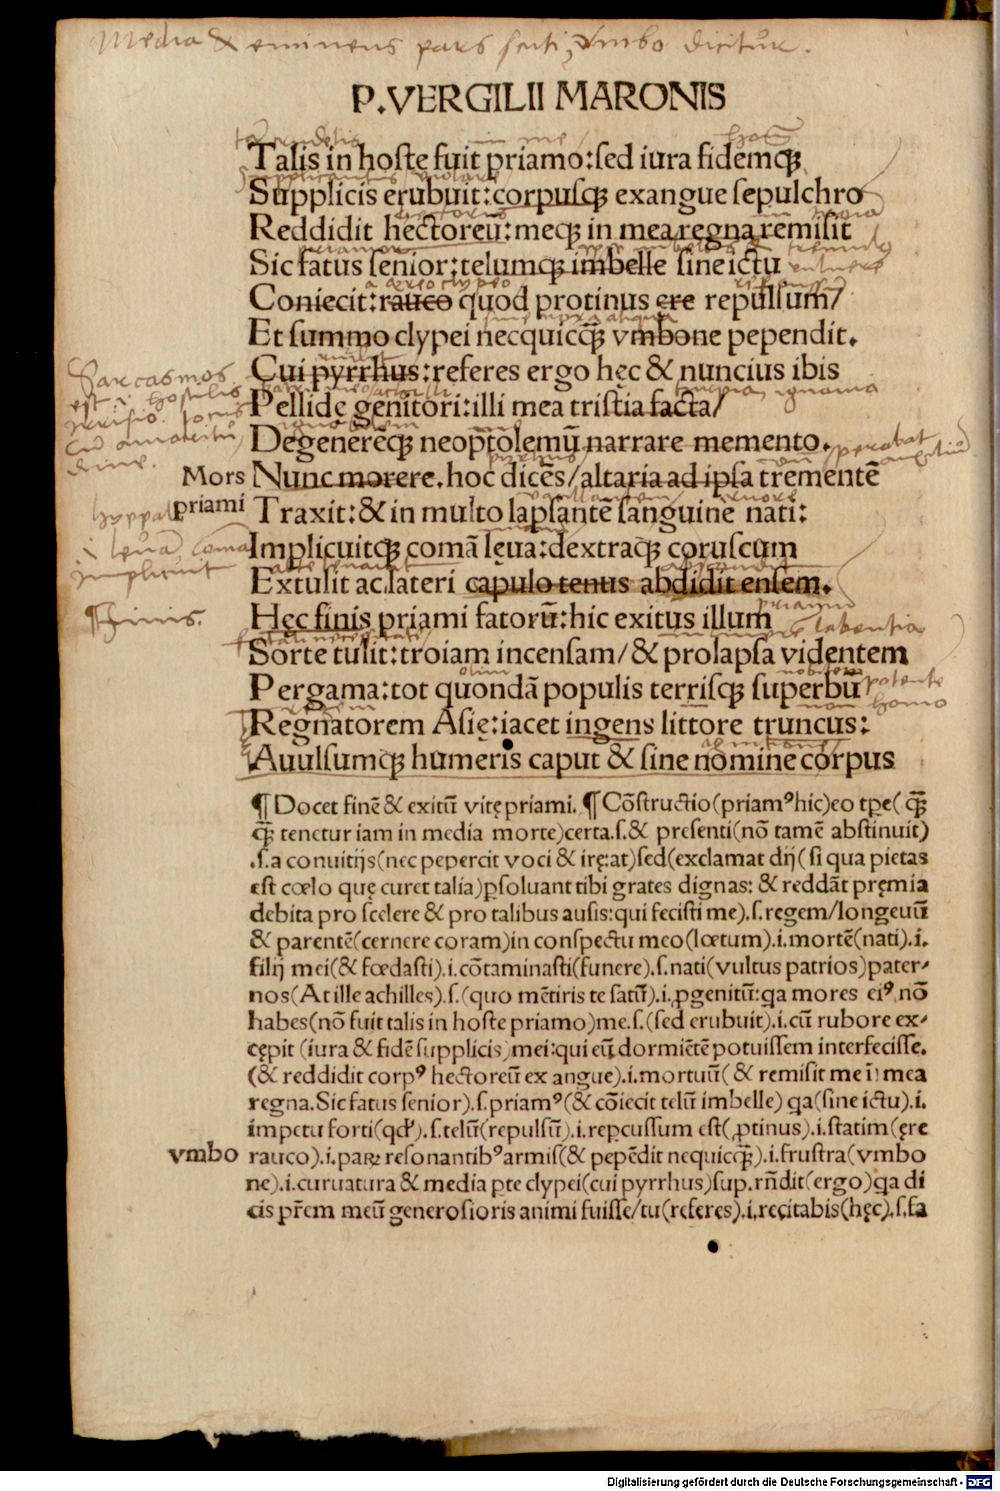 Media & eminens pars scuti, vmbo dicitur.
P. VERGILII MARONIS
Talis in hoste fuit priamo: sed iura fidemqꝫ
Supplicis erubuit: corpusqꝫ exangue sepulchro
Reddidit hectoreū: meqꝫ in mea regna remisit
Sic fatus senior: telumqꝫ imbelle sine ictu
Coniecit: rauco quod protinus ere repulsum/
Et summo clypei necquicq̄ꝫ vmbone pependit.
Cui pyrrhus: referes ergo hęc & nuncius ibis
Pellidę genitori: illi mea tristia facta/
Degenerēqꝫ neoptolemū narrare memento.
Nunc morere. hoc dicēs/ altaria ad ipsa trementē
Mors
priami
Traxit: & in multo lapsantē sanguine nati:
Implicuitqꝫ comā lęua: dextraqꝫ coruscum
Extulit ac lateri capulo tenus abdidit ensem.
Hęc finis priami fatorū: hic exitus illum
Sorte tulit: troiam incensam/ & prolapsa videntem
Pergama: tot quondā populis terrisqꝫ superbū
Regnatorem Asię: iacet ingens littore truncus:
Auulsumqꝫ humeris caput & sine nomine corpus
Sarcasmos
est .i. hostilis
irrisio
finis.
¶ Docet finē & exitū vitę priami. ¶ Cōstructio (priamꝰ hic) eo tꝑe (q̄ꝫ
q̄ꝫ tenetur iam in media morte) certa. s. & presenti (nō tamē abstinuit)
.s. a conuitijs (nec pepercit voci & irę: at) sed (exclamat dij (si qua pietas
est cœlo quę curet talia) ꝑsoluant tibi grates dignas: & reddāt pręmia
debita pro scelere & pro talibus ausis: qui fecisti me) .s. regem/ longeuū
& parentē (cernere coram) in conspectu meo (lœtum) .i. mortē (nati) .i.
filij mei (& fœdasti) .i. cōtaminasti (funere) .s. nati (vultus patrios) pater-
nos (At ille achilles) .s. (quo mētiris te satū) .i. ꝓgenitū: qa mores eiꝰ nō
habes (nō fuit talis in hoste priamo) me. s. (sed erubuit) .i. cū rubore ex-
cępit (iura & fidē supplicis) mei: qui eū dormiētē potuissem interfecisse.
(& reddidit corpꝰ hectoreū ex angue) .i. mortuū (& remisit me ī) mea
regna. Sic fatus senior) .s. priamꝰ (& cōiecit telū imbelle) qa (sine ictu) .i.
impetu forti (qd') .s. telū (repulsū) .i. repcussum est (ꝓtinus) .i. statim (ęre
vmbo
rauco) .i. paꝝ resonantibꝰ armis (& pepēdit nequicq̄ꝫ) .i. frustra (vmbo
ne) .i. curuatura & media ꝑte clypei (cui pyrrhus) sup. rn̄dit (ergo) qa di
cis pr̄em meū generosioris animi fuisse/ tu (referes) .i. recitabis (hęc) .s. fa
Digitalisierung gefördert durch die Deutsche Forschungsgemeinschaft - DFG